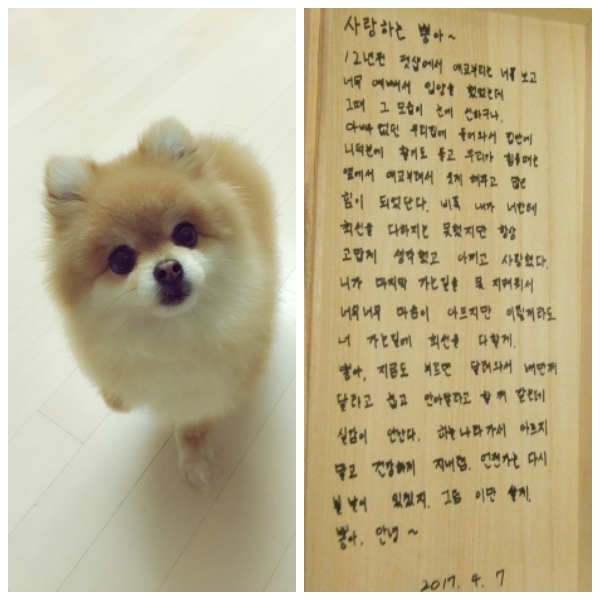 사랑하는 뽕아~
12년전 펫샵에서 애교부리는 너를 보고
너무 예뻐서 입양을 했었는데
그때 그 모습이 눈에 선하구나.
아빠 없던 우리집에 들어와서 집안에
니덕분에 활기도 돌고 우리가 힘들때는
옆에서 애교부려서 웃게 해주고 많은
힘이 되었단다. 비록 내가 너한테
최선을 다하지는 못했지만 항상
고맙게 생각했고 아끼고 사랑했다.
니가 마지막 가는길을 못 지켜줘서
너무너무 마음이 아프지만 이렇게라도
너 가는길에 최선을 다할게.
뽕아, 지금도 부르면 달려와서 배만져
달라고 하고 안아달라고 할 거 같은데
실감이 안난다. 하늘나라가서 아프지
말고 건강하게 지내렴. 언젠가는 다시
볼 날이 있겠지. 그럼 이만 쓸게.
뽕아, 안녕~
2017. 4. 7